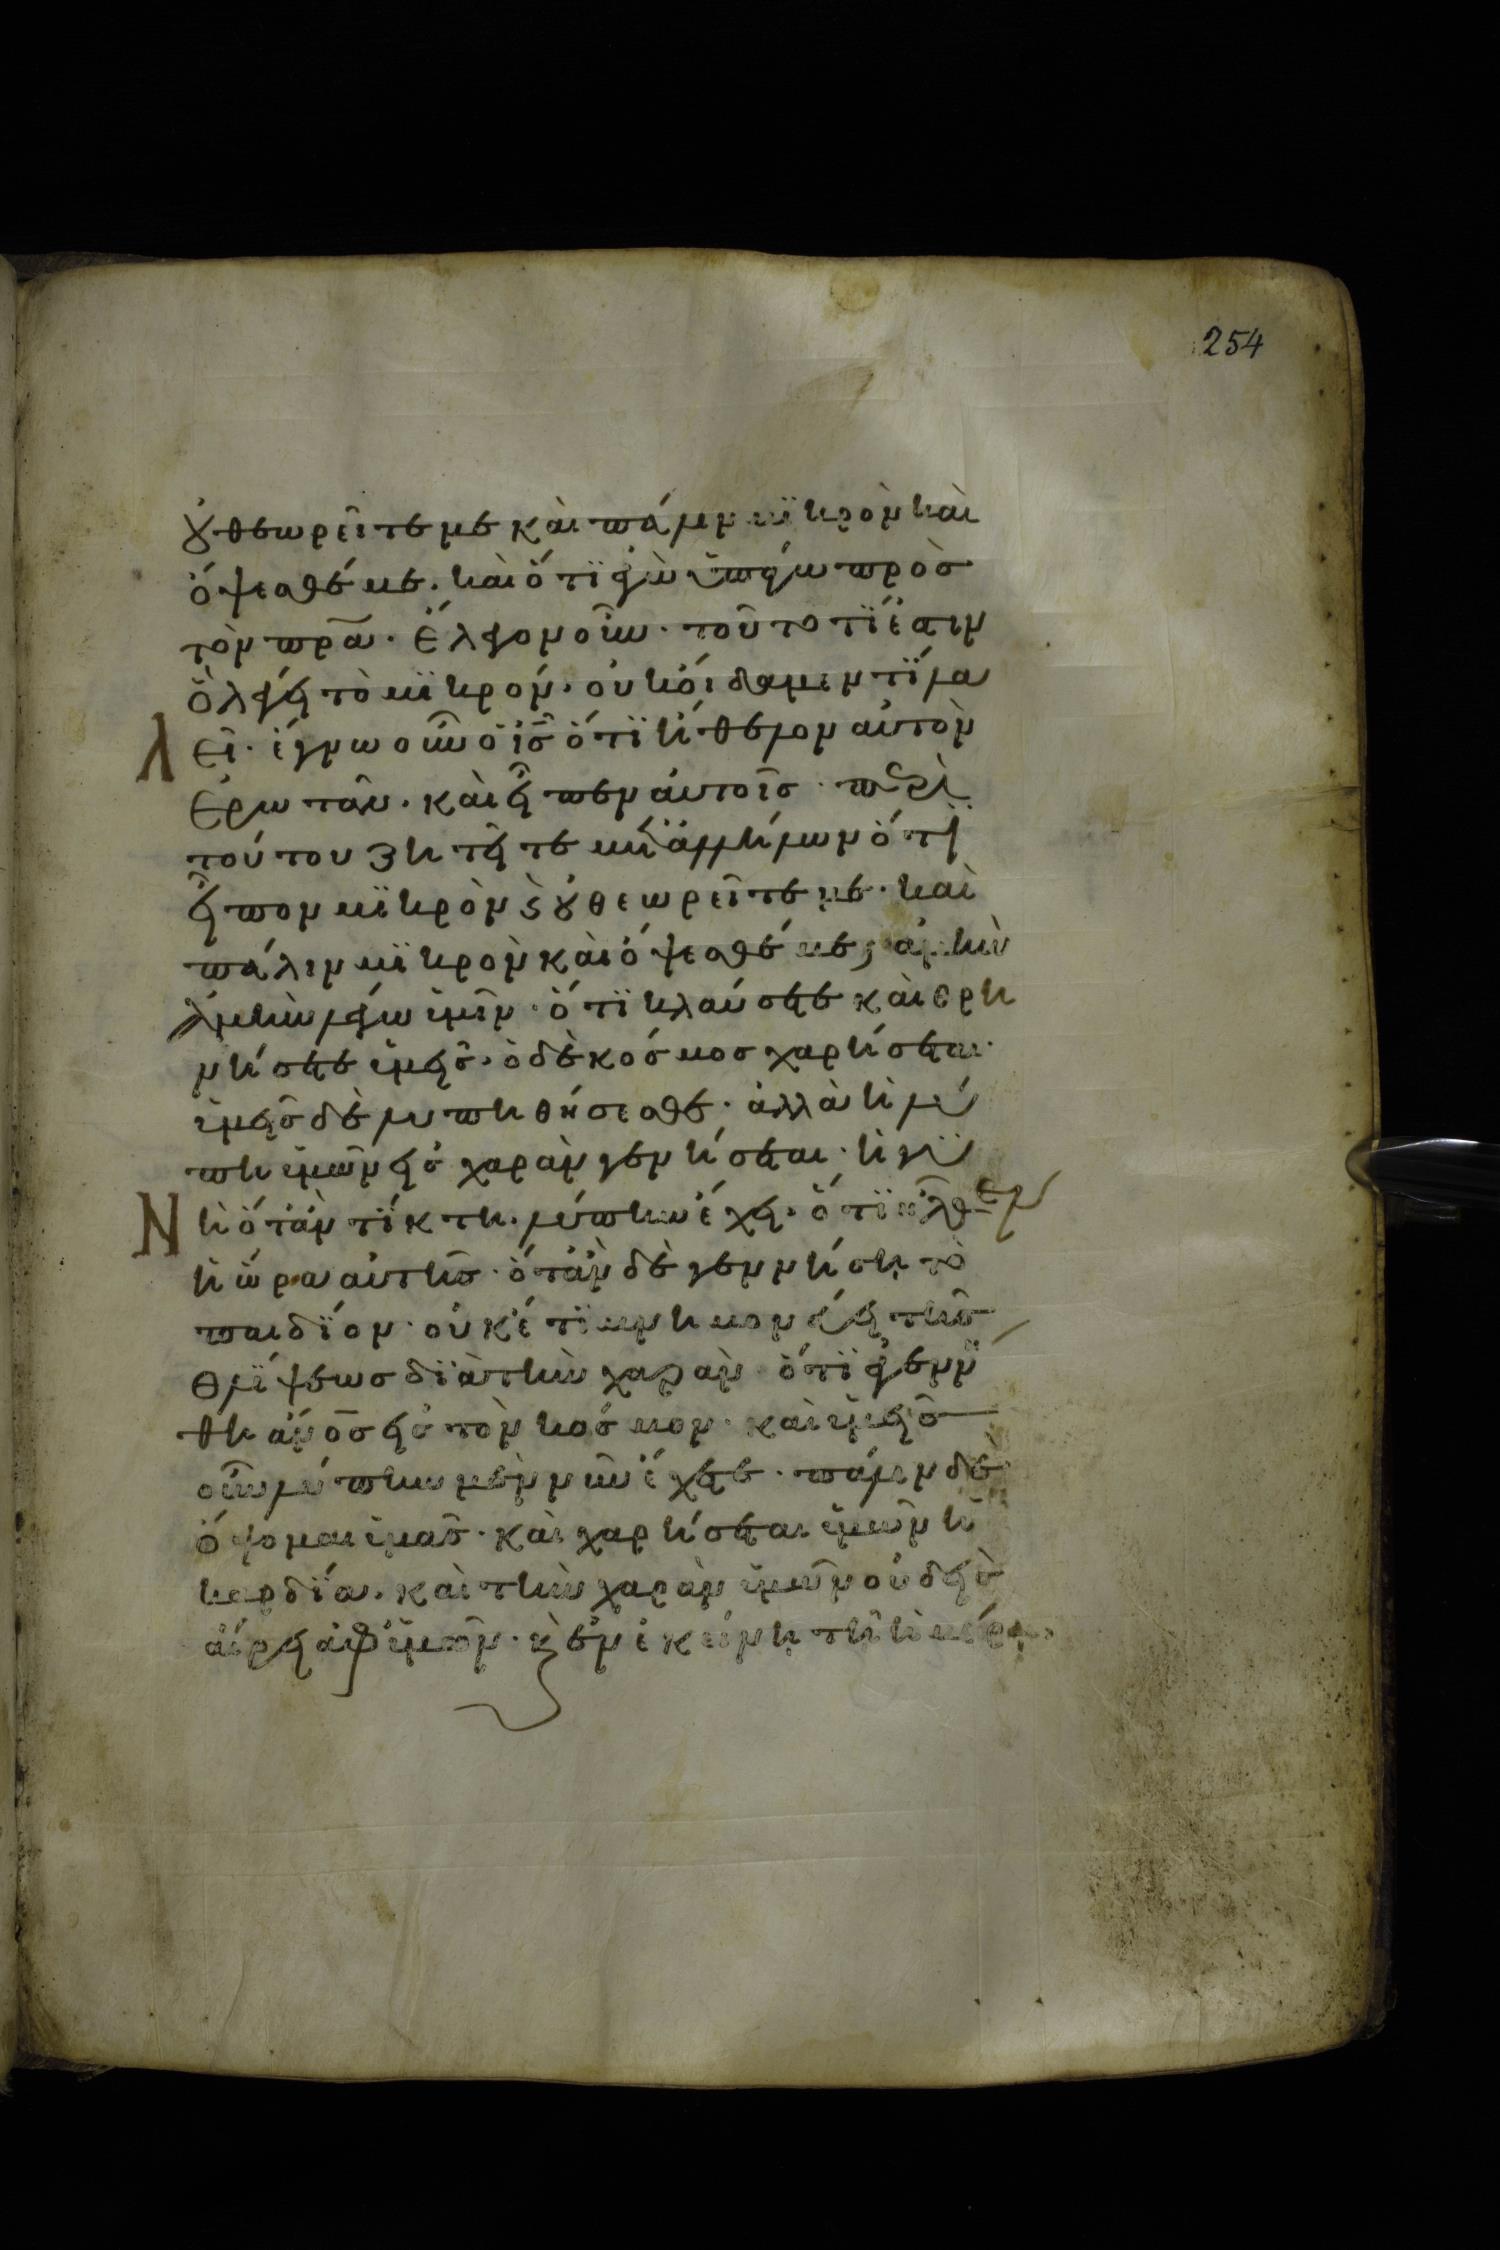 254
ȣ θεωρεῖτέ με καὶ πάλιν μϊκρὸν καὶ
ὄψεσθέ με. καὶ ὅτϊ ἐγὼ ὑπάγω πρὸσ
τὸν πρ̅α. Ἔλεγον οὖν. τοῦτο τΐ ἐστιν
Ὃ λέγει τὸ μϊκρόν. οὐκ οἴδαμεν τΐ λα
λεῖ. ἔγνω οὖν ὁ ἰ̅σ̅ ὅτϊ ἤθελον αὐτὸν
Ἐρωτᾶν. καὶ εἶπεν αὐτοῖσ. περὶ
τούτου ζητεῖτε μετ' ἀλλήλων ὅτϊ
εἶπον μϊκρὸν ϗ ȣ θεωρεῖτέ με. καὶ
πάλιν μϊκρὸν καὶ ὄψεσθέ με; ἀμὴν
ἀμὴν λέγω ὑμῖν. ὅτϊ κλαύσετε καὶ θρη
νήσετε ὑμεῖσ. ὁ δὲ κόσμοσ χαρήσεται.
ὑμεῖσ δὲ λυπηθήσεσθε. ἀλλὰ ἡ λύ
πη ὑμῶν εἰσ χαρὰν γενήσεται. ἡ γϋ
Νὴ ὅταν τΐκτη. λύπην ἔχει. ὅτϊ ἦλθεν
ἡ ὥρα αὐτῆσ. ὅταν δὲ γεννήση τὸ
παιδΐον. οὐκέτϊ μνημονεύει τῆσ
θλΐψεωσ δϊὰ τὴν χαρὰν ὅτϊ ἐγεννή
θη ἀν̅ο̅σ εἰσ τὸν κόσμον. καὶ ὑμεῖσ
οὖν λύπην μὲν νῦν ἔχετε. πάλιν δὲ
ὄψομαι ὑμᾶσ. καὶ χαρήσεται ὑμῶν ἡ
καρδΐα. καὶ τὴν χαρὰν ὑμῶν οὐδεὶσ
αἴρει ἀφ' ὑμῶν. ϗ ἐν ἐκείνη τῆ ἡμέρα.